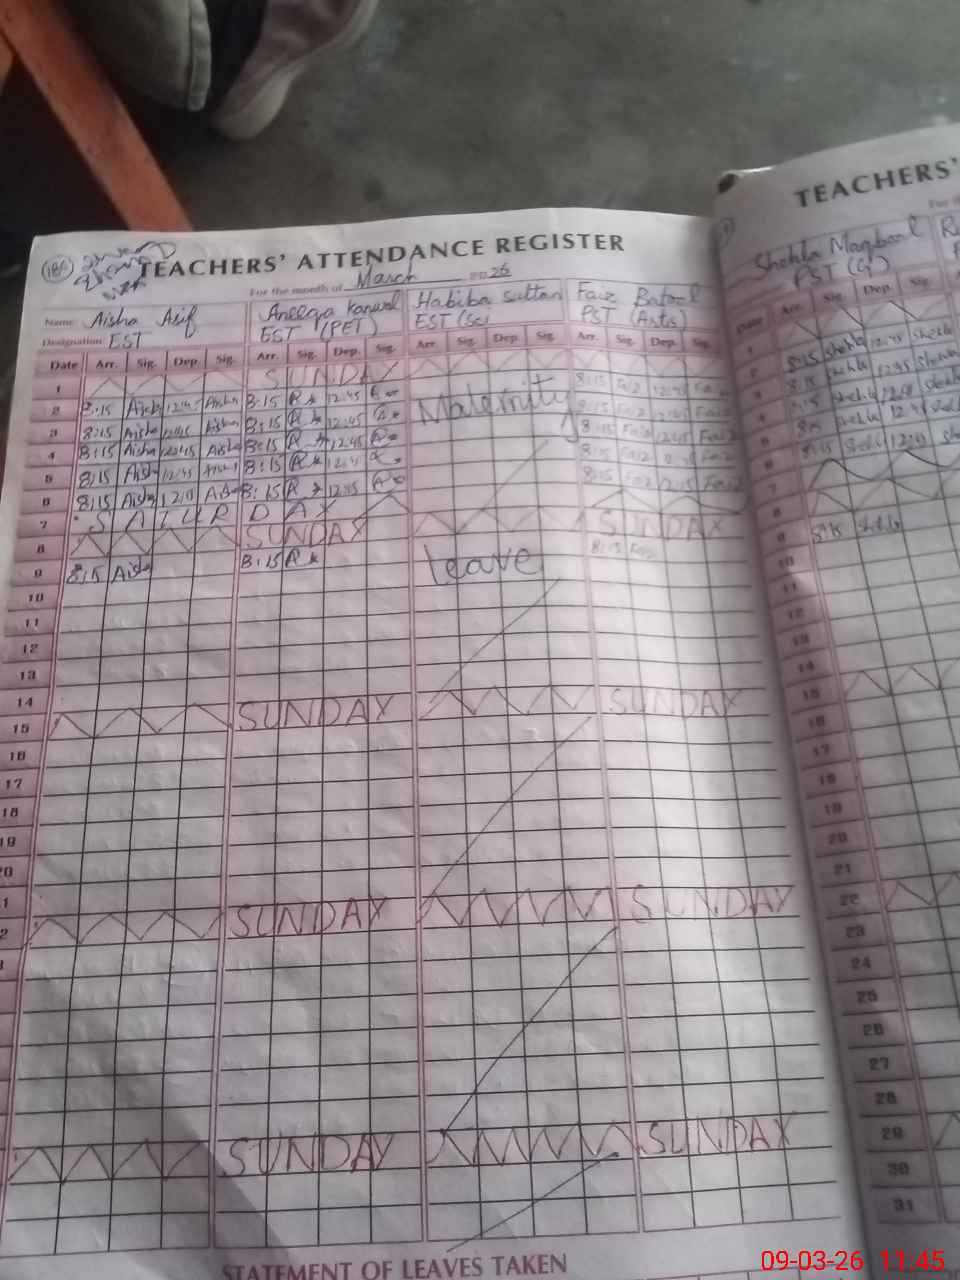 186
TEACHERS' ATTENDANCE REGISTER
For the month of March 26
Name Aisha Asif Aneeqa kanwal Habiba sultan Faiz Batool
Designation EST EST (PET) EST (Sci PST (Arts)
Date Arr. Sig. Dep. Sig. Arr. Sig. Dep. Sig. Arr. Sig. Dep. Sig. Arr. Sig. Dep. Sig.
1 SUNDAY
2 8:15 Aisha 12:45 Aisha 8:15 12:45 Maternity 8:15 Faiz 12:45 Faiz
3 8:15 Aisha 12:45 Aisha 8:15 12:45 8:15 Faiz 12:45 Faiz
4 8:15 Aisha 12:45 Aisha 8:15 12:45 8:15 Faiz 12:45 Faiz
5 8:15 Aisha 12:45 8:15 12:45 8:15 Faiz 12:45 Faiz
6 8:15 Aisha Aisha 8:15 12:45 8:15 Faiz 12:45 Faiz
7 SATURDAY
8 SUNDAY SUNDAY
9 8:15 Aisha 8:15 leave 8:15 Faiz
10
11
12
13
14
15 SUNDAY SUNDAY
16
17
18
19
20
SUNDAY SUNDAY
SUNDAY SUNDAY
STATEMENT OF LEAVES TAKEN
TEACHERS'
Shehla Maqbool
PST (G)
Date Arr. Sig. Dep. Sig.
1
2 8:15 Shehla 12:45 Shehla
3 8:15 Shehla 12:45 Shehla
4 8:15 Shehla Shehla
5 Shehla 12:45 Shehla
6 8:15 Shehla 12:45 Shehla
7
8
9 8:15 Shehla
10
11
12
13
14
15
16
17
18
19
20
21
22
23
24
25
26
27
28
29
30
31
09-03-26 11:45